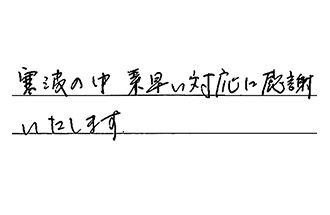 寒波の中 素早い対応に感謝
いたします